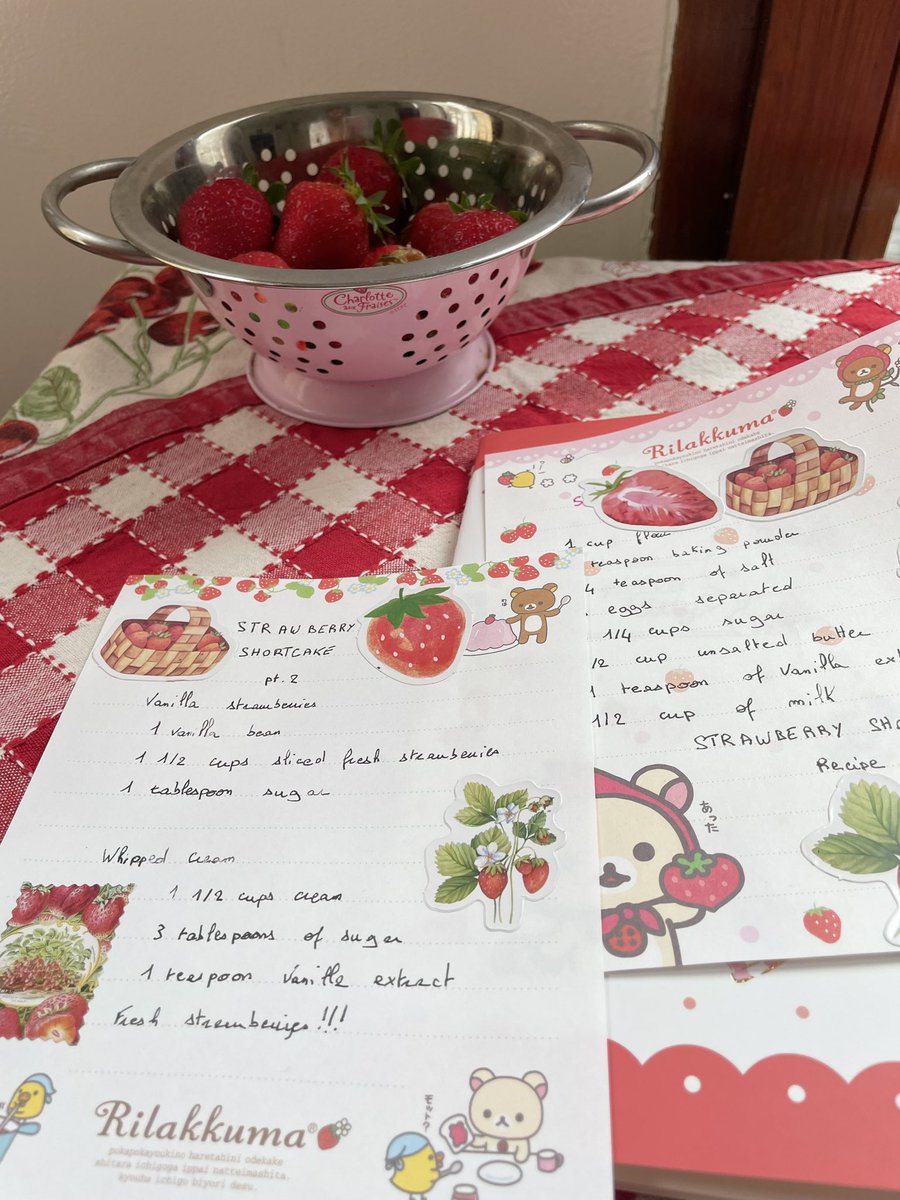 Charlotte
aux Fraises
Rilakkuma®
pokapokayoukino haretahini odekake
shitara ichigoga ippai natteimashita.
1 cup flour
teaspoon baking powder
4 teaspoon of salt
eggs seperated
1/4 cups sugar
1/2 cup unsalted butter
1 teaspoon of Vanilla ext
1/2 cup of milk
STRAWBERRY SHO
Recipe
あった
STRAWBERRY
SHORTCAKE
pt. 2
Vanilla strawberries
1 vanilla bean
1 1/2 cups sliced fresh strawberries
1 tablespoon sugar
Whipped cream
1 1/2 cups cream
3 tablespoons of sugar
1 teaspoon Vanilla extract
Fresh strawberries!!!
Rilakkuma®
pokapokayoukino haretahini odekake
shitara ichigoga ippai natteimashita.
kyouha ichigo biyori desu.